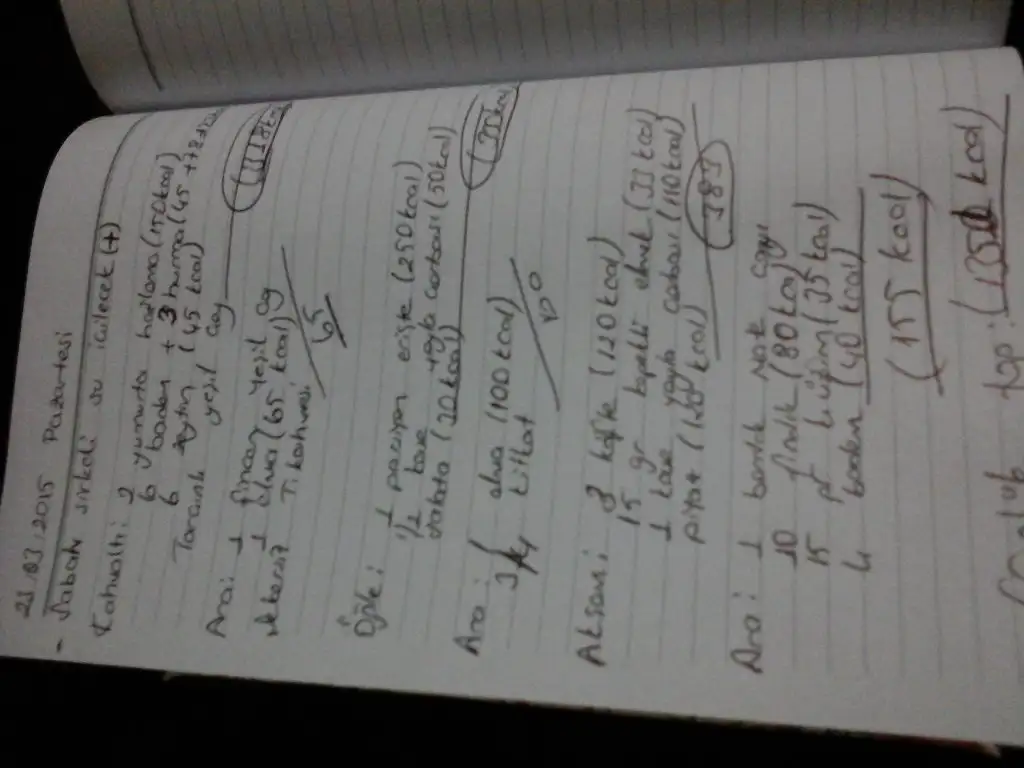 23.03.2015 Pazartesi
- Sabah: sirkeli su içilecek (+)
Kahvaltı: 2 yumurta haşlama (150 kcal)
6 badem + 3 hurma (45 +
6 zeytin (45 kcal)
Tarçınlı yeşil çay
Ara: 1 fincan yeşil çay
1 elma (65 kcal)
T. kahvesi
65
Öğle: 1 porsiyon erişte (250 kcal)
1/2 kase yayla çorbası (50 kcal)
salata (20 kcal)
Ara: elma (100 kcal)
3 kitkat
100
Akşam: 3 köfte (120 kcal)
15 gr kepekli ekmek (33 kcal)
1 kase yayla çorbası (110 kcal)
piyaz (120 kcal)
(383)
Ara: 1 bardak çayı
10 fındık (80 kcal)
15 üzüm (35 kcal)
4 badem (40 kcal)
(155 kcal)
top: kcal)